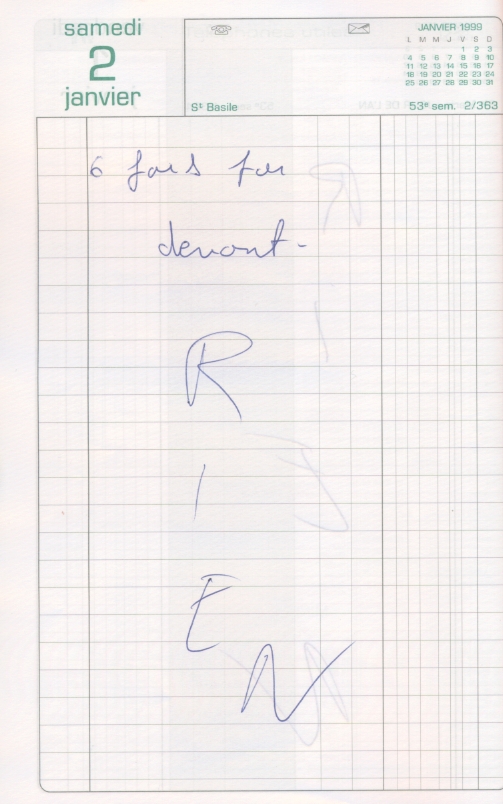 samedi
2
janvier
St Basile
JANVIER 1999
L M M J V S D
1 2 3
4 5 6 7 8 9 10
11 12 13 14 15 16 17
18 19 20 21 22 23 24
25 26 27 28 29 30 31
53e sem. 2/363
6 fois
devant-
R
I
E
N